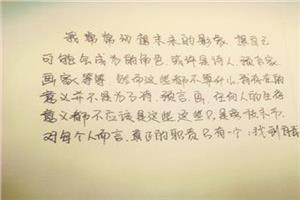 我常常幻想未来的影象，想自己
可能会成为的角色，或许是诗人、预言家
画家等等，然而这些都不算什么，我存在的
意义并不是为了诗、预言、画，任何人的生存
意义都不应该是这些，这些只是旁枝末节，
对每个人而言，真正的职责只有一个：找到自我